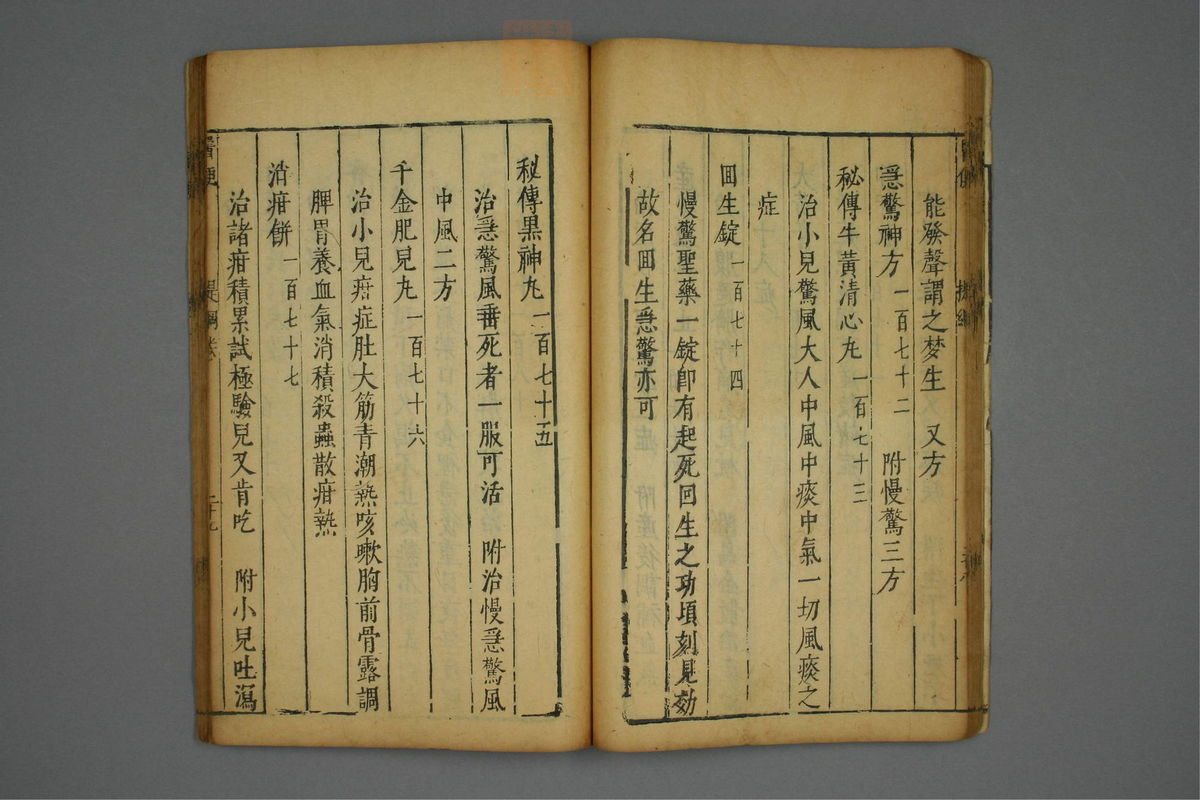 能發聲謂之夢生　又方
急驚神方　一百七十二　附慢驚三方
秘傳牛黃清心丸　一百七十三
治小兒驚風大人中風中痰中氣一切風痰之
症
囬生錠　一百七十四
慢驚聖藥一錠即有起死回生之功頃刻見効
故名囬生急驚亦可
秘傳黒神丸　一百七十五
治急驚風垂死者一服可活　附治慢急驚風
中風二方
千金肥兒丸　一百七十六
治小兒疳症肚大筋青潮熱咳嗽胸前骨露調
脾胃養血氣消積殺蟲散疳熱
消疳餅　一百七十七
治諸疳積累試極驗兒又肯吃　附小兒吐瀉